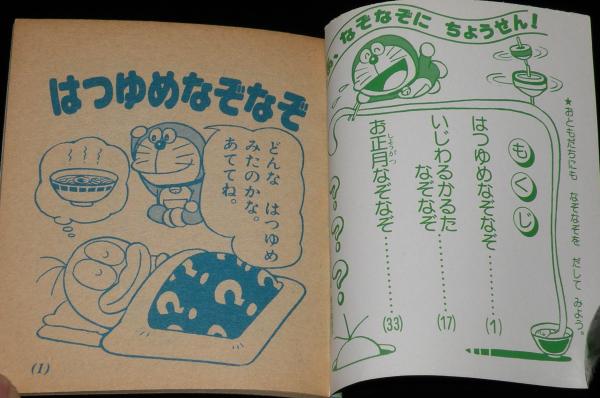 はつゆめなぞなぞ
どんな はつゆめ
みたのかな。
あててね。
(1)
なぞなぞに ちょうせん!
★おともだちにも なぞなぞを だして みよう。
もくじ
はつゆめなぞなぞ………(1)
いじわるかるた
なぞなぞ………(17)
お正月なぞなぞ………(33)
しょうがつ
???